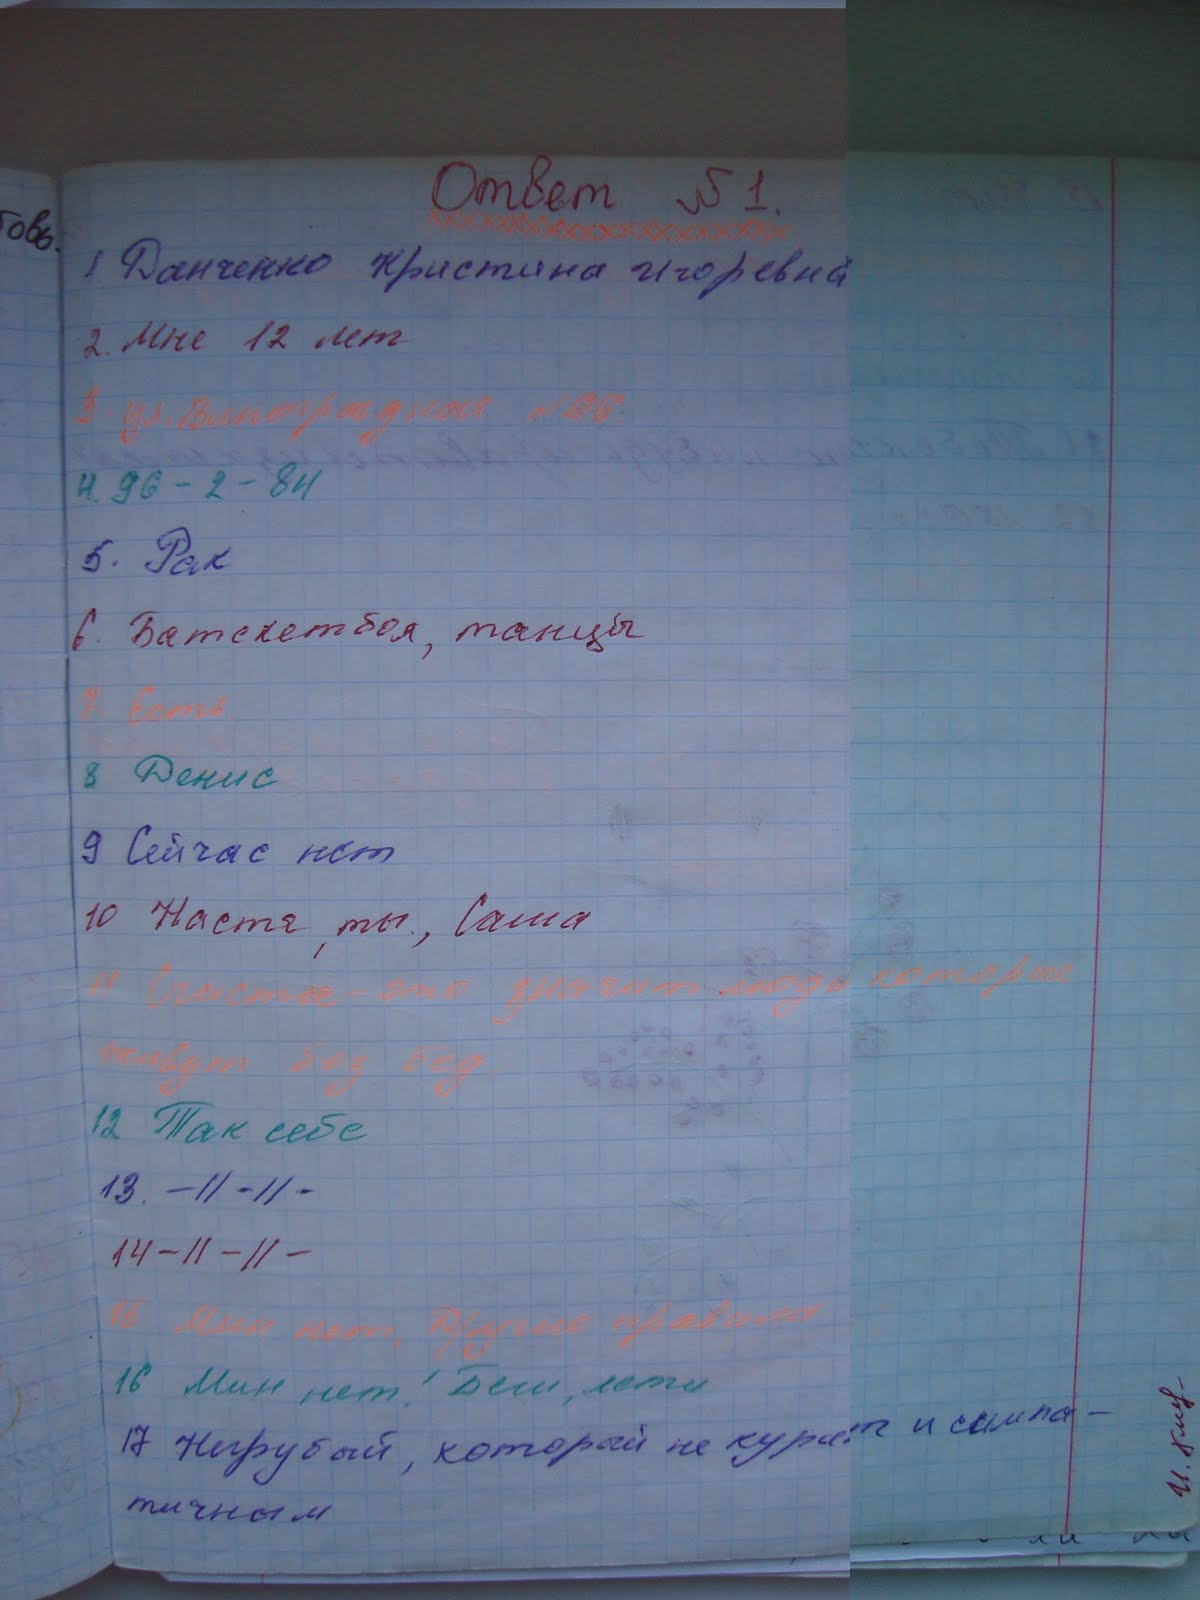 товь.
Ответ №1.
1 Данченко Кристина Игоревна
2. Мне 12 лет
3. ул. Виноградная №26.
4. 96-2-84
5. Рак
6. Батскетбол, танцы
7. Есть.
8 Денис
9 Сейчас нет
10 Настя, ты., Саша
11 Счастье - это значит люди которые
живут без бед.
12 Так себе
13. -//-//-
14 -//-//-
15 Мин нет,
16 Мин нет!
17 Негрубый, который не курит и симпа-
тичным